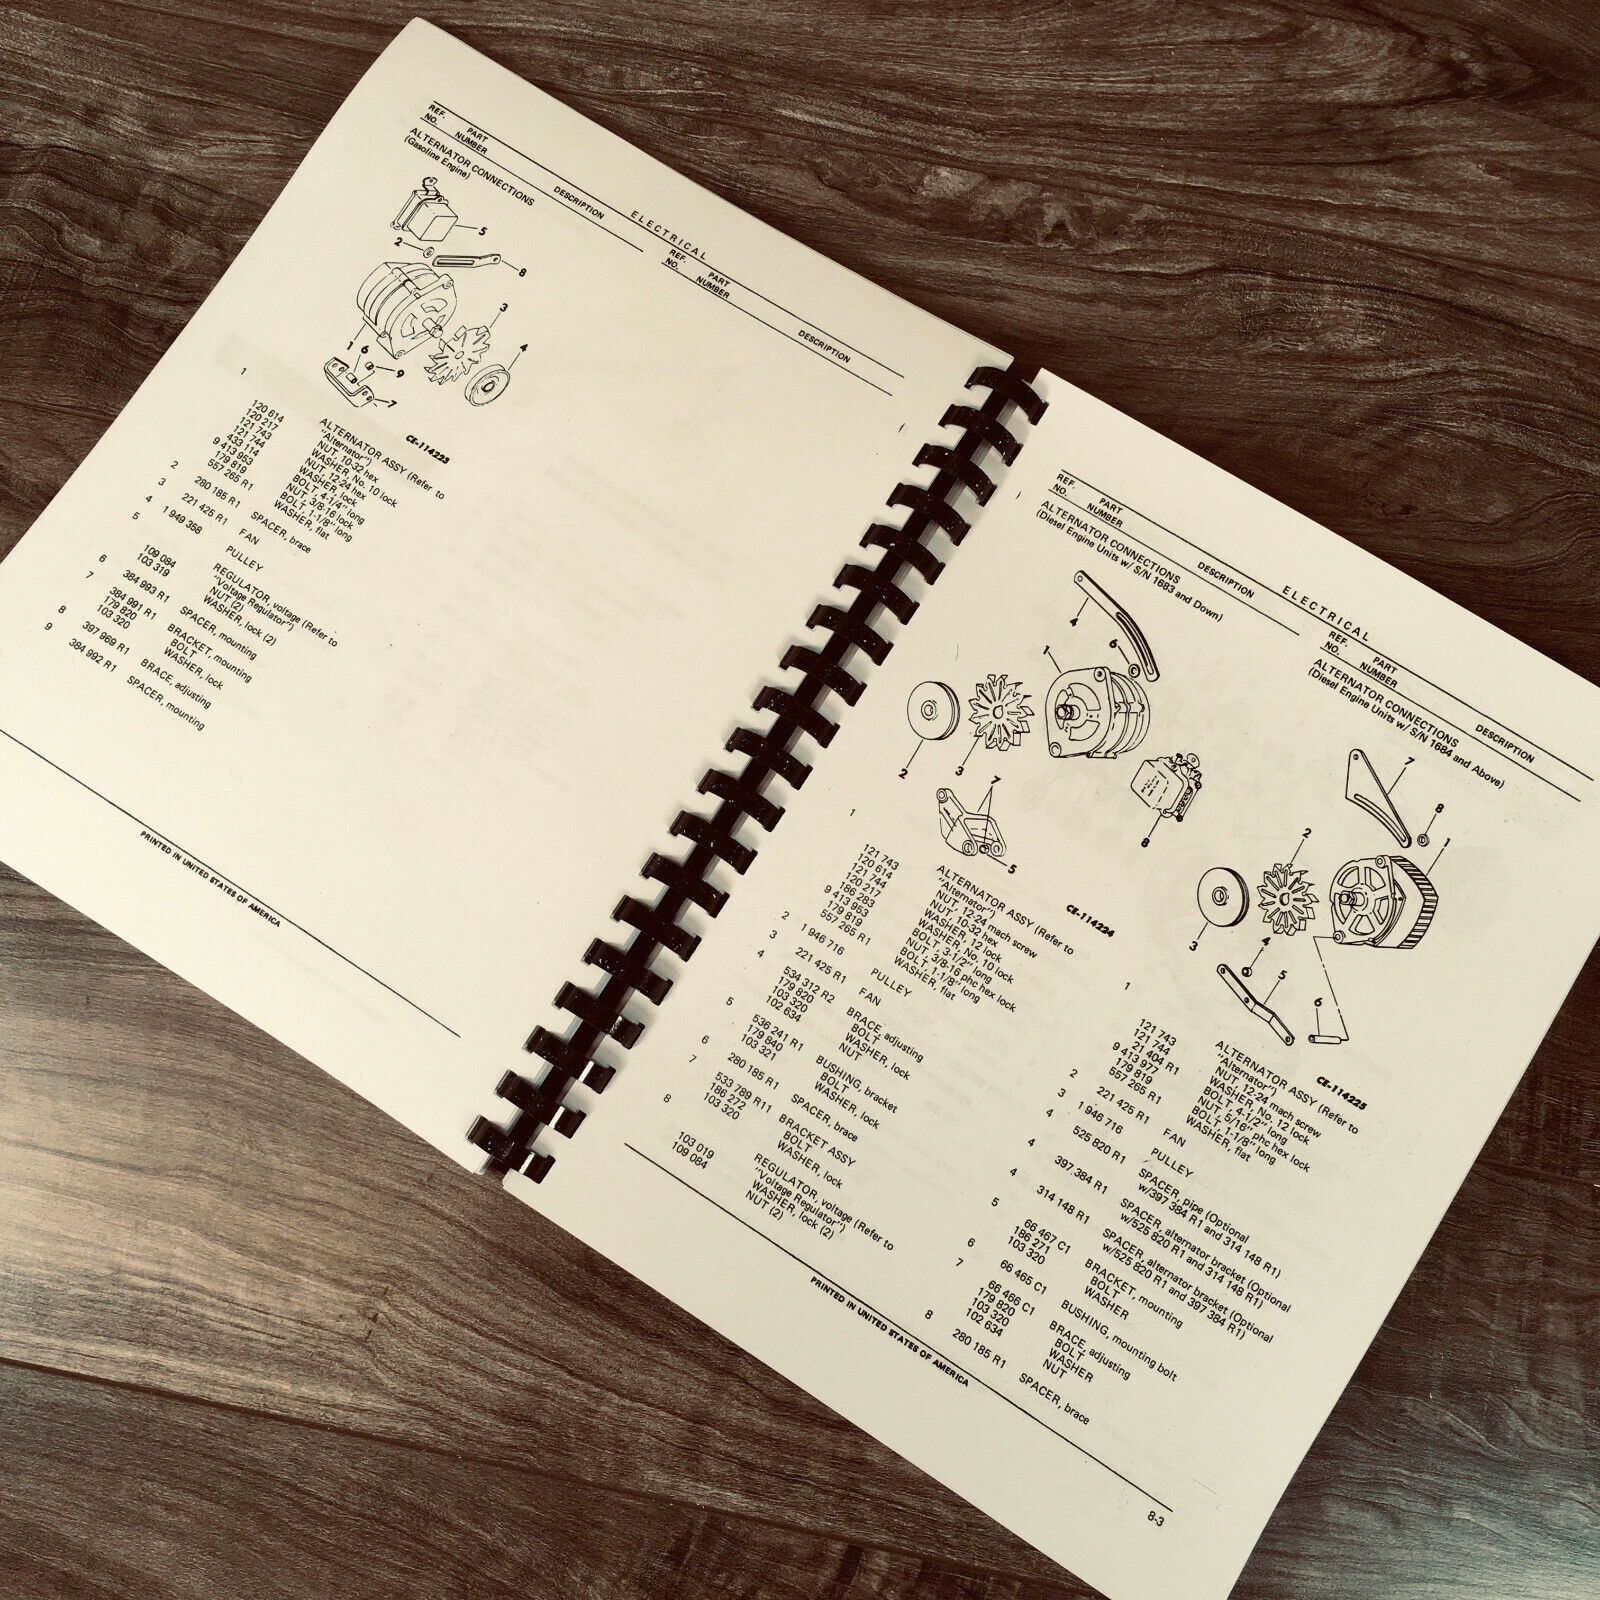 ELECTRICAL
REF. NO. PART NUMBER DESCRIPTION
REF. NO. PART NUMBER DESCRIPTION
ALTERNATOR CONNECTIONS
(Gasoline Engine)
5
2
8
3
1
6
4
9
7
CE-114223
1 ALTERNATOR ASSY (Refer to
"Alternator")
120 614 NUT, 10-32 hex
120 217 WASHER, No. 10 lock
121 743 NUT, 12-24 hex
121 744 WASHER, lock
433 114 BOLT, 4-1/4" long
9 413 953 NUT, 3/8-16 lock
179 819 BOLT, 1-1/8" long
557 265 R1 WASHER, flat
2 280 185 R1 SPACER, brace
3 221 425 R1 FAN
4 1 949 358 PULLEY
5 REGULATOR, voltage (Refer to
"Voltage Regulator")
109 084 NUT (2)
103 319 WASHER, lock (2)
6 384 993 R1 SPACER, mounting
7 384 991 R1 BRACKET, mounting
179 820 BOLT
103 320 WASHER, lock
8 397 969 R1 BRACE, adjusting
9 384 992 R1 SPACER, mounting
PRINTED IN UNITED STATES OF AMERICA
ELECTRICAL
REF. NO. PART NUMBER DESCRIPTION
REF. NO. PART NUMBER DESCRIPTION
ALTERNATOR CONNECTIONS
(Diesel Engine Units w/ S/N 1683 and Down)
4
6
1
2
3
7
8
5
CE-114224
1 ALTERNATOR ASSY (Refer to
"Alternator")
121 743 NUT, 12-24 mach screw
120 614 NUT, 10-32 hex
121 744 WASHER, 12 lock
120 217 WASHER, No. 10 lock
186 283 BOLT, 3-1/2" long
9 413 953 NUT, 3/8-16 phc hex lock
179 819 BOLT, 1-1/8" long
557 265 R1 WASHER, flat
2 1 946 716 PULLEY
3 221 425 R1 FAN
4 534 312 R2 BRACE, adjusting
179 820 BOLT
103 320 WASHER, lock
102 634 NUT
5 536 241 R1 BUSHING, bracket
179 840 BOLT
103 321 WASHER, lock
6 280 185 R1 SPACER, brace
7 533 789 R11 BRACKET ASSY
186 272 BOLT
103 320 WASHER, lock
8 REGULATOR, voltage (Refer to
"Voltage Regulator")
103 019 WASHER, lock (2)
109 084 NUT (2)
ALTERNATOR CONNECTIONS
(Diesel Engine Units w/ S/N 1684 and Above)
7
8
1
2
3
4
5
6
CE-114225
1 ALTERNATOR ASSY (Refer to
"Alternator")
121 743 NUT, 12-24 mach screw
121 744 WASHER, No. 12 lock
21 404 R1 BOLT, 4-1/2" long
9 413 977 NUT, 5/16" phc hex lock
179 819 BOLT, 1-1/8" long
557 265 R1 WASHER, flat
2 221 425 R1 FAN
3 1 946 716 PULLEY
4 525 820 R1 SPACER, pipe (Optional
w/397 384 R1 and 314 148 R1)
4 397 384 R1 SPACER, alternator bracket (Optional
w/525 820 R1 and 314 148 R1)
4 314 148 R1 SPACER, alternator bracket (Optional
w/525 820 R1 and 397 384 R1)
5 66 467 C1 BRACKET, mounting
186 271 BOLT
103 320 WASHER
6 66 465 C1 BUSHING, mounting bolt
7 66 466 C1 BRACE, adjusting
179 820 BOLT
103 320 WASHER
102 634 NUT
8 280 185 R1 SPACER, brace
PRINTED IN UNITED STATES OF AMERICA
8-3